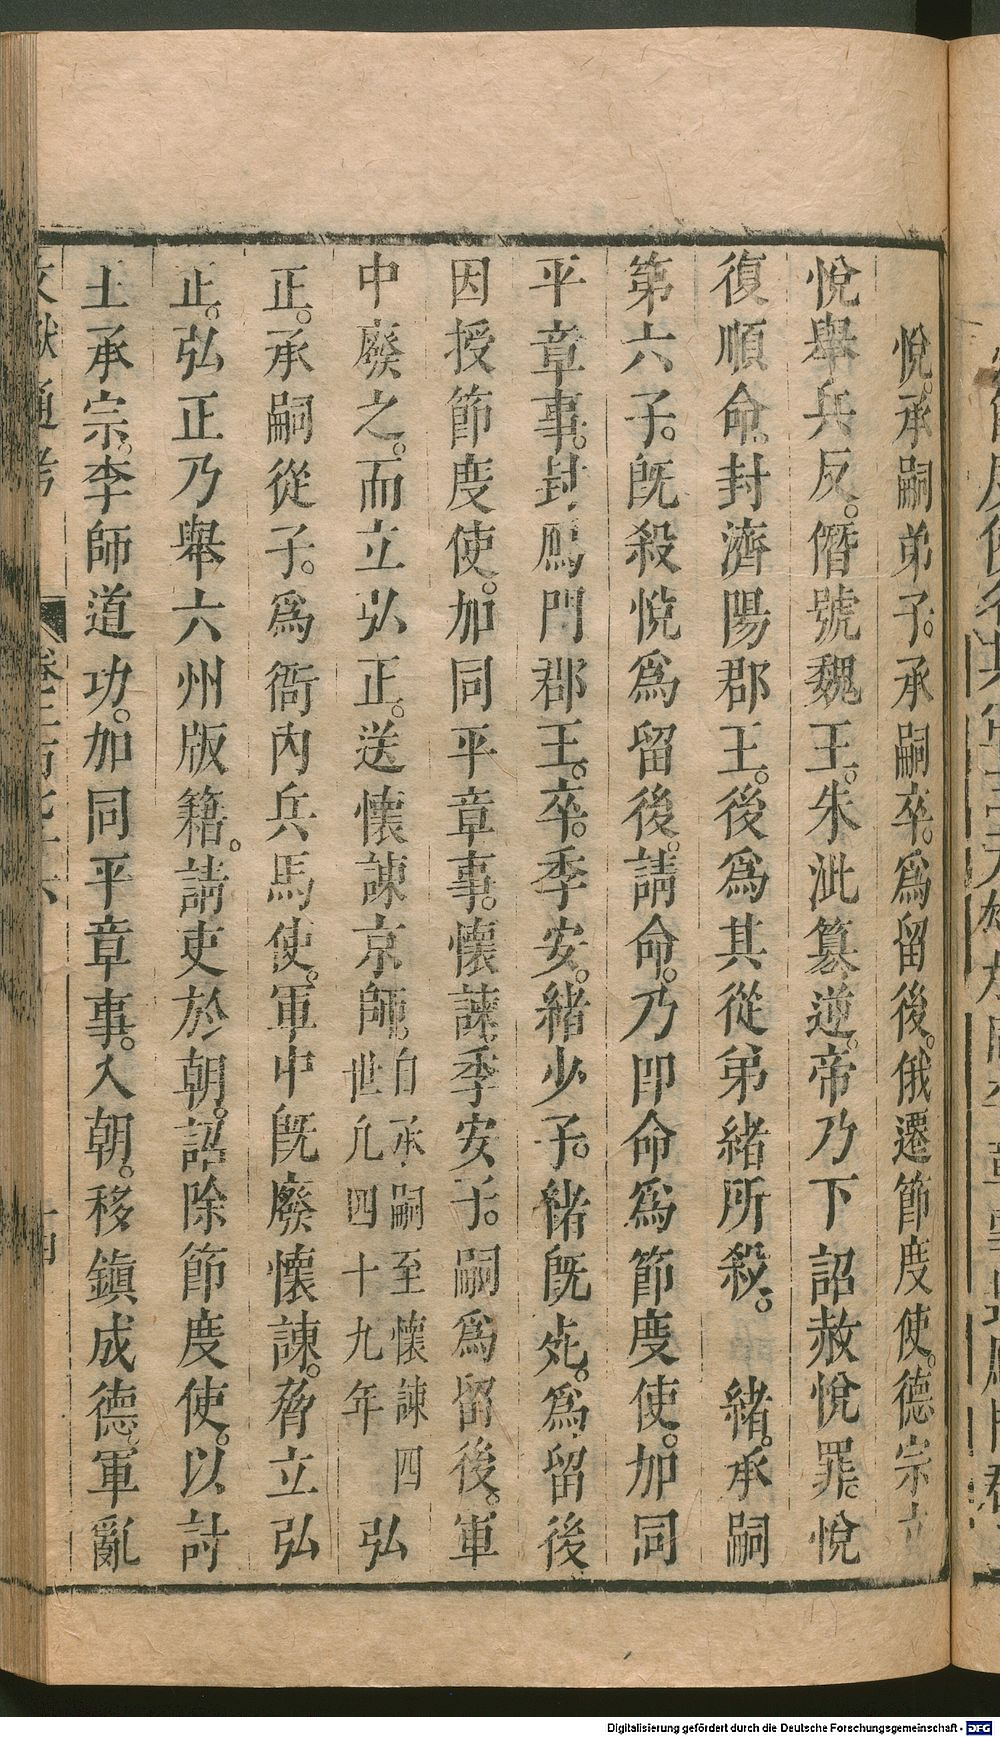 悅。承嗣弟子。承嗣卒。爲留後。俄遷節度使。德宗立
悅舉兵反。僭號魏王。朱泚篡逆。帝乃下詔赦悅罪。悅
復順命。封濟陽郡王。後爲其從弟緒所殺。　緒。承嗣
第六子。既殺悅爲留後。請命。乃即命爲節度使。加同
平章事。封鴈門郡王。卒。季安。緒少子。緒既死。爲留後
因授節度使。加同平章事。懷諫。季安子。嗣爲留後。軍
中廢之。而立弘正。送懷諫京師。自承嗣至懷諫四世凡四十九年　弘
正。承嗣從子。爲衙內兵馬使。軍中既廢懷諫。脅立弘
正。弘正乃舉六州版籍。請吏於朝。詔除節度使。以討
土承宗。李師道功。加同平章事。入朝。移鎮成德。軍亂
文獻通考　卷二百七十六　十四
Digitalisierung gefördert durch die Deutsche Forschungsgemeinschaft - DFG